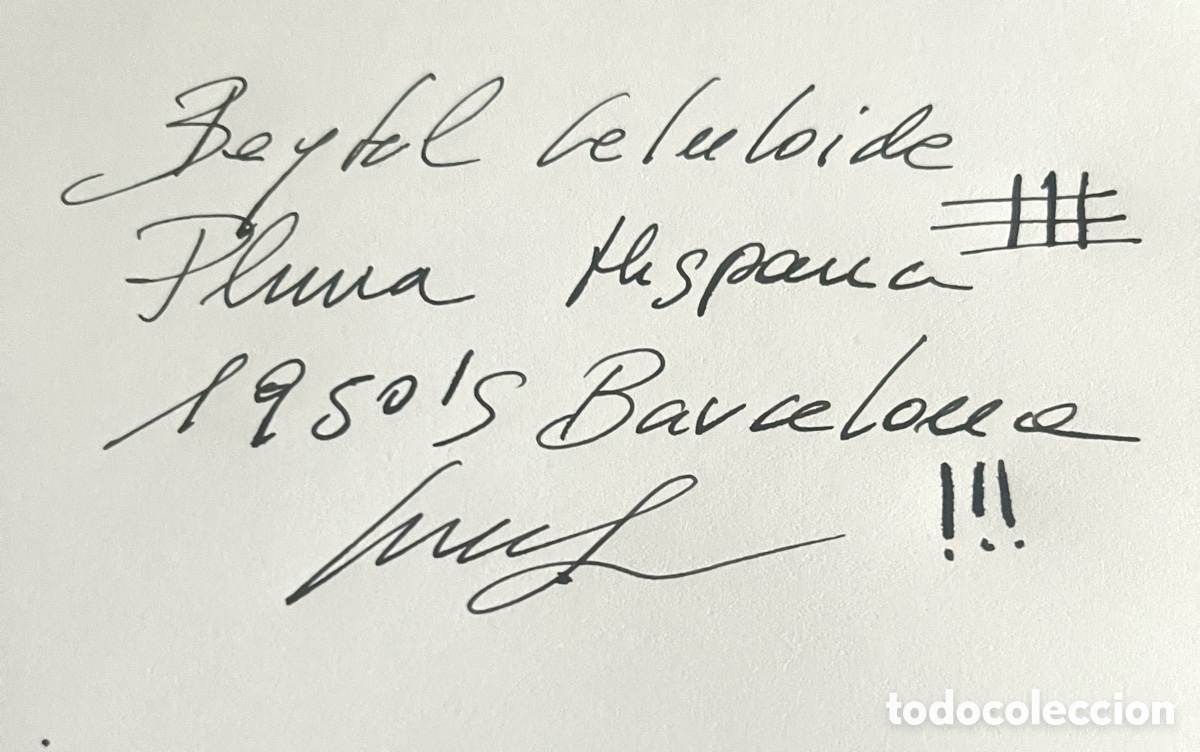 Beytel Celuloide
Pluma Hispana
1950's Barcelona
!!!
todocoleccion